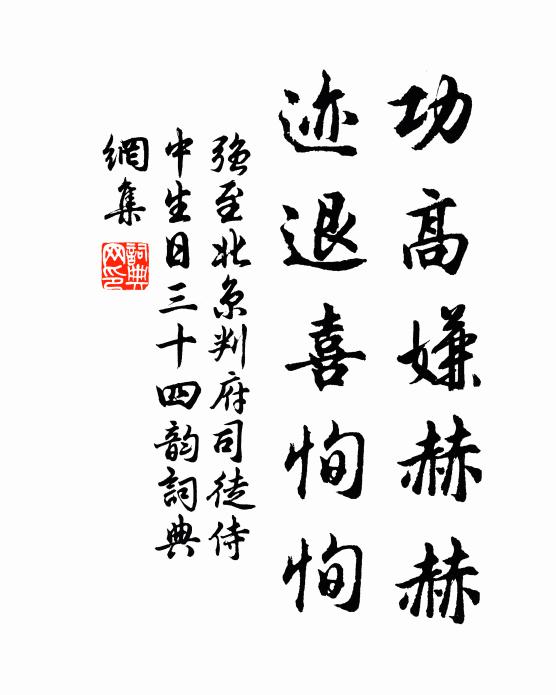 功高嫌赫赫
迹退喜恂恂
强至北京判府司徒侍
中生日三十四韵詞典
網集
詞典網印